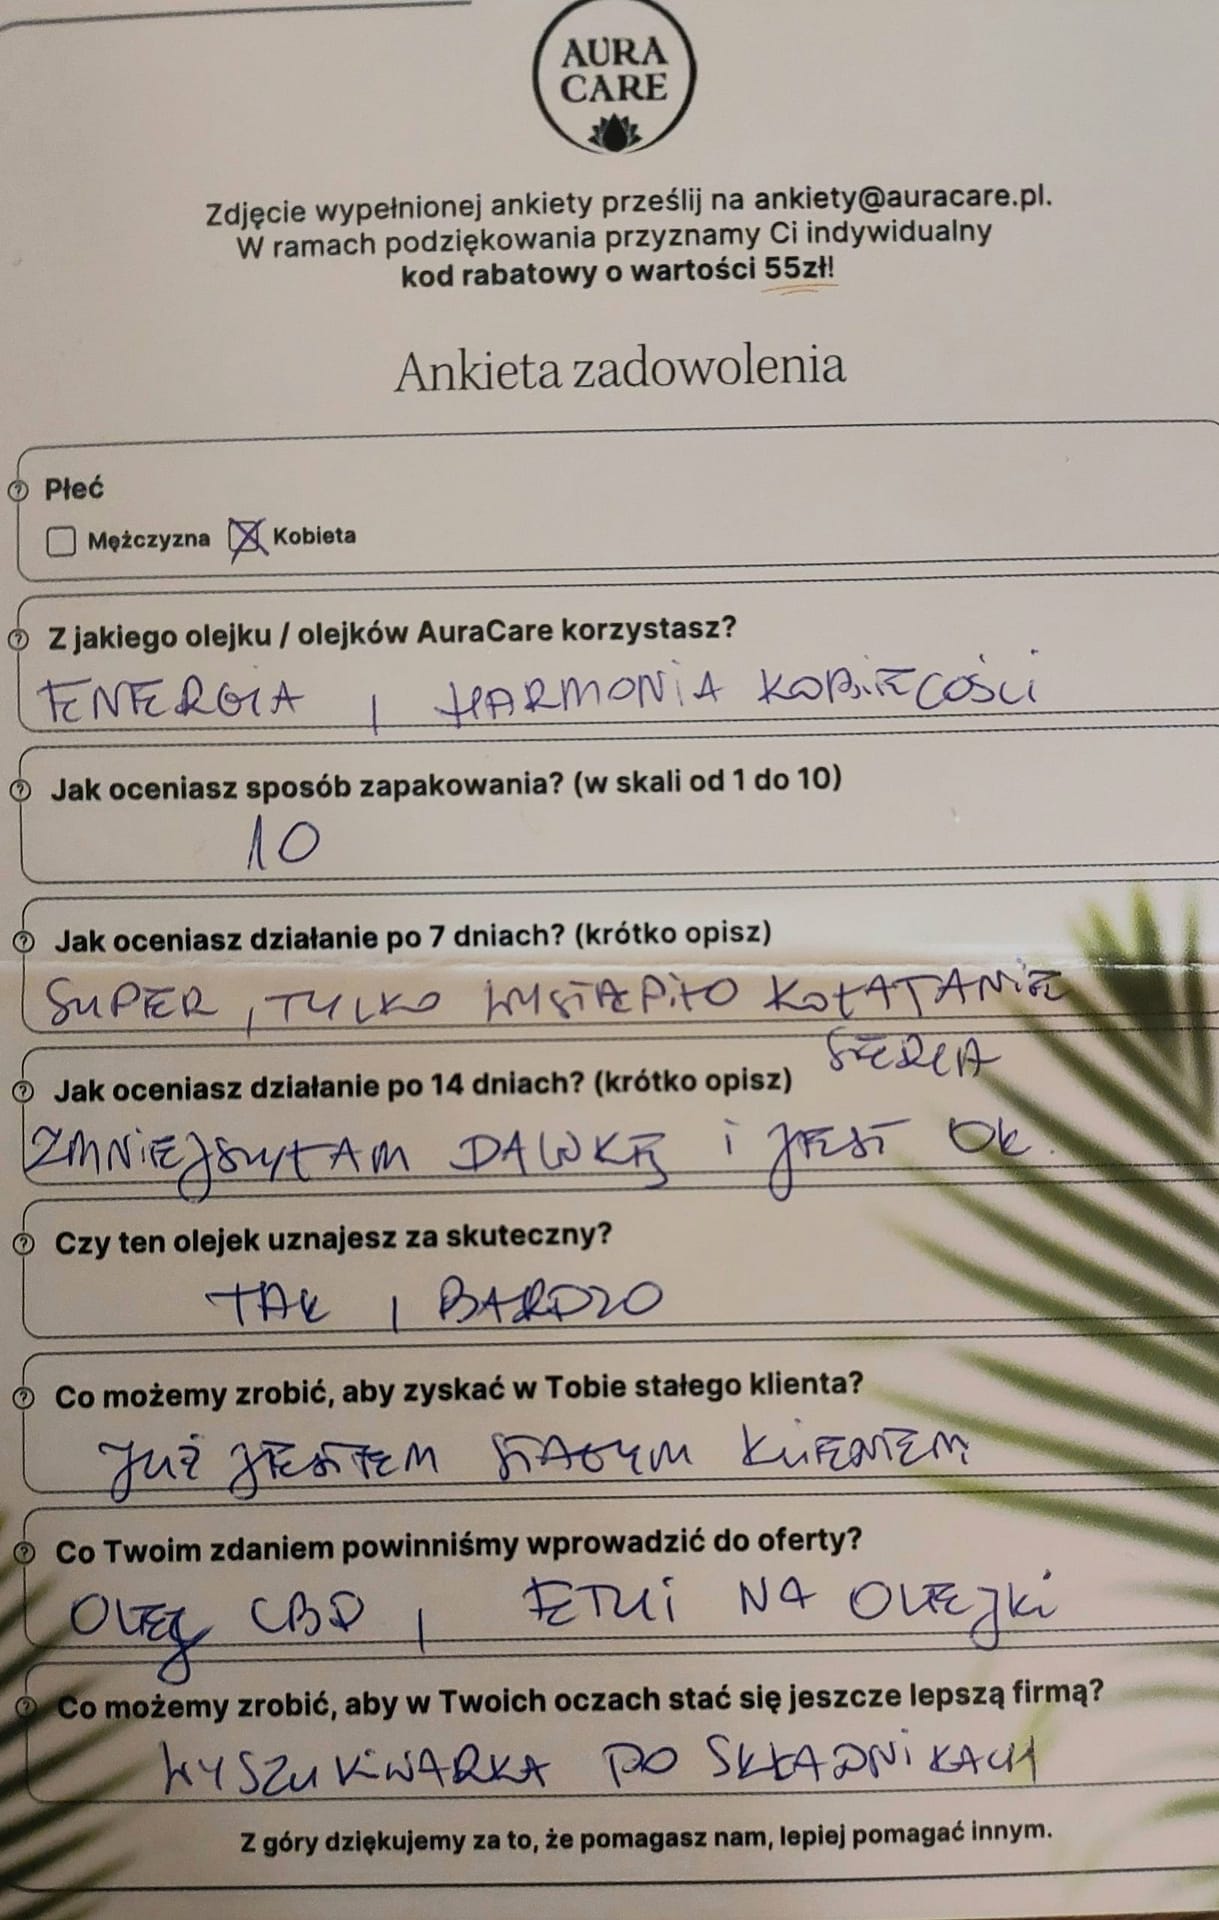 AURA
CARE
Zdjęcie wypełnionej ankiety prześlij na ankiety@auracare.pl.
W ramach podziękowania przyznamy Ci indywidualny
kod rabatowy o wartości 55zł!
Ankieta zadowolenia
Płeć
Mężczyzna Kobieta
Z jakiego olejku / olejków AuraCare korzystasz?
ENERGIA, HARMONIA KOBIECOŚCI
Jak oceniasz sposób zapakowania? (w skali od 1 do 10)
10
Jak oceniasz działanie po 7 dniach? (krótko opisz)
SUPER, TYLKO WYSTĄPIŁO KOŁATANIE
SERCA
Jak oceniasz działanie po 14 dniach? (krótko opisz)
ZMNIEJSZYŁAM DAWKĘ i JEST OK.
Czy ten olejek uznajesz za skuteczny?
TAK, BARDZO
Co możemy zrobić, aby zyskać w Tobie stałego klienta?
JUŻ JESTEM STAŁYM KLIENTEM
Co Twoim zdaniem powinniśmy wprowadzić do oferty?
OLEJ CBD, ETUI NA OLEJKI
Co możemy zrobić, aby w Twoich oczach stać się jeszcze lepszą firmą?
WYSZUKIWARKA PO SKŁADNIKACH
Z góry dziękujemy za to, że pomagasz nam, lepiej pomagać innym.